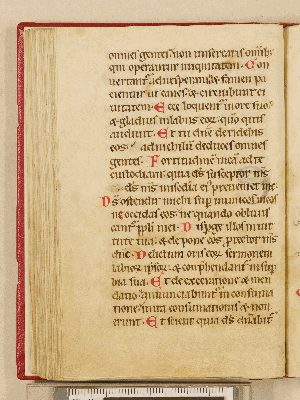 omnes gentes: non miserearis omnibus
qui operantur iniquitatem. Con
vertantur ad vesperam: & famem pa
cientur ut canes & circuibunt ci
vitatem. Ecce loquentur in ore suo:
& gladius in labiis eorum: quoniam quis
audivit. Et tu domine deridebis
eos: ad nichilum deduces omnes
gentes. Fortitudinem meam ad te
custodiam: quia deus susceptor meus
deus meus misericordia eius preveniet me.
Deus ostendit michi super inimicos meos
ne occidas eos: ne quando obliviscantur
populi mei. Disperge illos in vir
tute tua: & depone eos protector meus
domine. Delictum oris eorum sermonem
labiorum ipsorum: & comprehendantur in super
bia sua. Et de execratione & men
dacio annunciabuntur in consuma
tione: in ira consumationis & non
erunt. Et scient quia deus